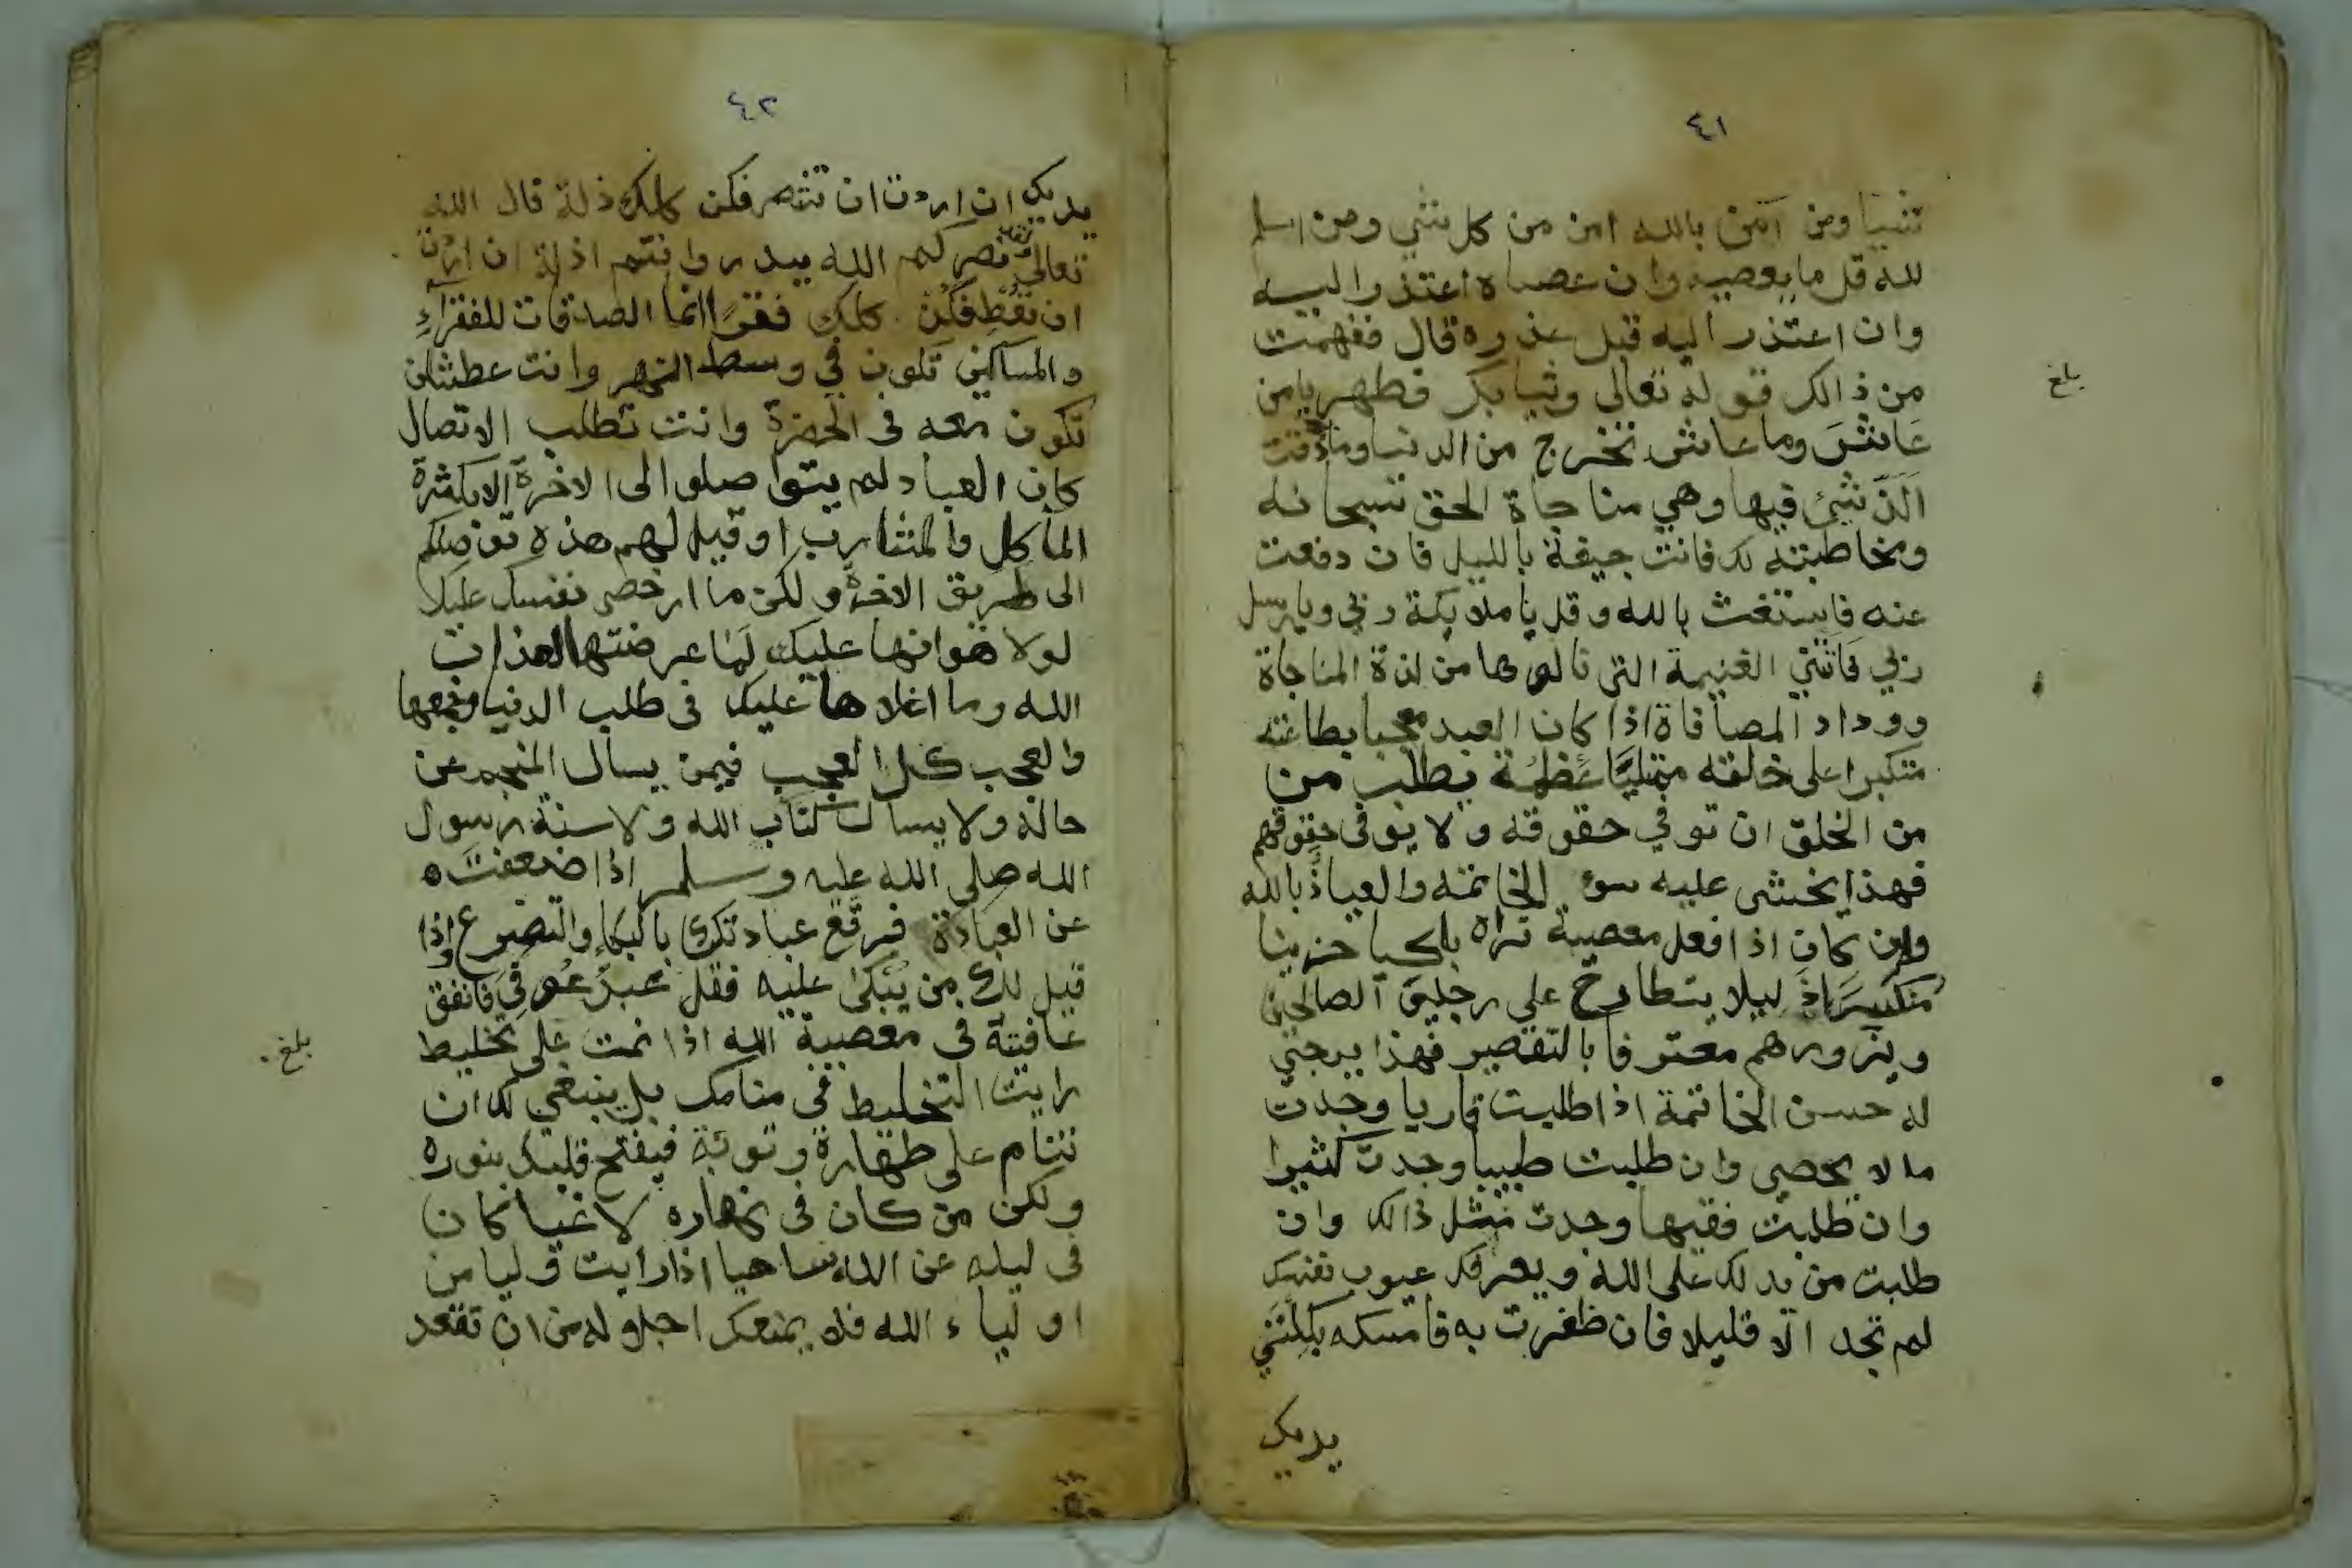 ٤١
شيا ومن آمن بالله امن من كل شي ومن اسلم
لله قل ما يعصيه وان عصاه اعتذر اليه
وان اعتذر اليه قبل عذره قال ففهمت
من ذالك قوله تعالى وثيابك فطهر يا من
بلغ
عَاشَ وما عاش تخرج من الدنيا وما ذقت
الذ شئ فيها وهي مناجاة الحق سبحانه
ومخاطبته لك فانت جيفة بالليل فان دفعت
عنه فاستغث بالله وقل يا ملايكة ربي ويا رسل
ربي فاتتني الغنيمة التي نالوها من لذة المناجاة
ووداد المصافاة اذا كان العبد معجبا بطاعته
متكبرا على خلقه ممتليًا عَظَمَة يطلب من
من الخلق ان توفي حقوقه ولا يوفى حقوقهم
فهذا يخشى عليه سوء الخاتمه والعياذ بالله
وان كان اذا فعل معصية تراه باكيا حزينا
منكسرا ذليلا يتطارح على رجلي الصالحين
ويزورهم معترفا بالتقصير فهذا يرجي
له حسن الخاتمة اذا طلبت قاريا وجدت
ما لا يحصى وان طلبت طبيبا وجدت كثيرا
وان طلبت فقيها وجدت مثل ذالك وان
طلبت من يدلك على الله ويعرفك عيوب نفسك
لم تجد الا قليلا فان ظفرت به فامسكه بكلتي
يديك
٤٢
يديك ان اردت ان تنتصر فكن كلك ذلة قال الله
تعالى ولقد نصركم الله ببدر وانتم اذلة ان اردت
ان تعْطَ فكن كلك فقرًا انما الصدقات للفقرآءِ
والمساكين تكون في وسط النهر وانت عطشان
تكون معه في الحضرة وانت تطلب الاتصال
كان العباد لم يتواصلو الى الاخرة الا بكثرة
المأكل والمشارب او قيل لهم هذه توصلكم
الى طريق الاخرة ولكن ما ارخص نفسك عليك
لولا هوانها عليك لما عرضتها لعذاب
الله وما اغلاها عليك في طلب الدنيا وجمعها
والعجب كل العجب فيمن يسال المنجم عن
حاله ولا يسال كتاب الله ولا سنة رسول
الله صلى الله عليه وسلم اذا ضعفت ه
عن العبادة فرقع عبادتك بالبكاءِ والتضرع واذا
قيل لك من يُبْكَى عليه فقل عبدٌ عُوفِيَ فانفق
عافيته في معصية الله اذا نمت على تخليط
بلغ
رايت التخليط في منامك بل ينبغي لك ان
تنام على طهارة وتوبة فيفتح قلبك بنوره
ولكن من كان في نهاره لاغيا كان
في ليله عن الله ساهيا اذا رايت وليا من
اولياء الله فلا يمنعك اجلاله من ان تقعد